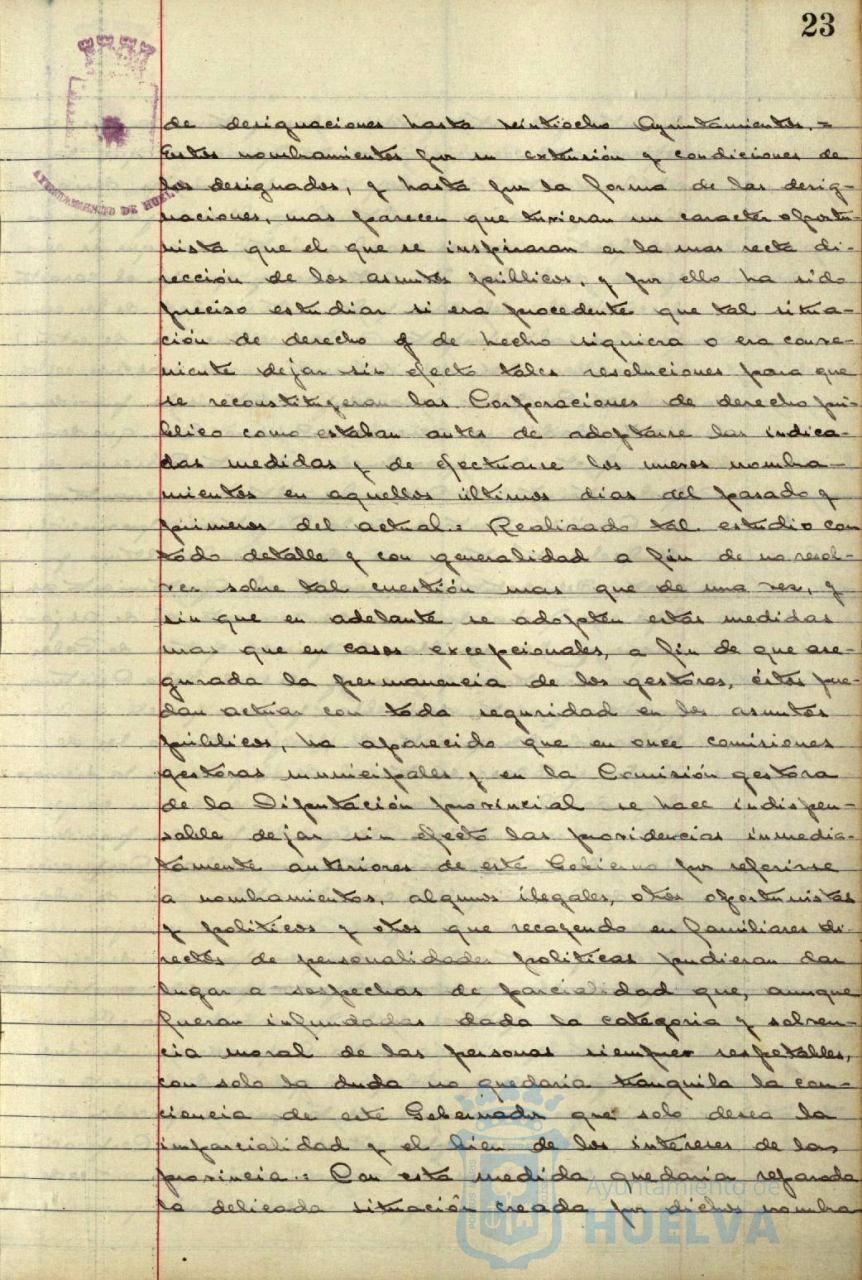 23
AYUNTAMIENTO DE HUELVA
de designaciones hasta veintiocho Ayuntamientos.=
Estos nombramientos por su extensión y condiciones de
los designados, y hasta por la forma de las desig-
naciones, mas parecen que tuvieran un caracter oportu-
nista que el que se inspiraran en la mas recta di-
rección de los asuntos públicos, y por ello ha sido
preciso estudiar si era procedente que tal situa-
ción de derecho y de hecho siguiera o era conve-
niente dejar sin efecto tales resoluciones para que
se reconstituyeran las Corporaciones de derecho pú-
blico como estaban antes de adoptarse las indica-
das medidas y de efectuarse los nuevos nombra-
mientos en aquellos últimos dias del pasado y
primeros del actual.= Realizado tal estudio con
todo detalle y con generalidad a fin de no resol-
ver sobre tal cuestión mas que de una vez, y
sin que en adelante se adopten estas medidas
mas que en casos excepcionales, a fin de que ase-
gurada la permanencia de los gestores, éstos pue-
dan actuar con toda seguridad en los asuntos
públicos, ha aparecido que en once comisiones
gestoras municipales y en la Comisión gestora
de la Diputación provincial se hace indispen-
sable dejar sin efecto las providencias inmedia-
tamente anteriores de este Gobierno por referirse
a nombramientos, algunos ilegales, otros oportunistas
y políticos y otros que recayendo en familiares di-
rectos de personalidades políticas pudieran dar
lugar a sospechas de parcialidad que, aunque
fueran infundadas dada la categoria y solven-
cia moral de las personas siempre respetables,
con solo la duda no quedaria tranquila la con-
ciencia de este Gobernador que solo desea la
imparcialidad y el bien de los intereses de la
provincia.= Con esta medida quedaria reparada
la delicada situación creada por dichos nombra
Ayuntamiento de
HUELVA